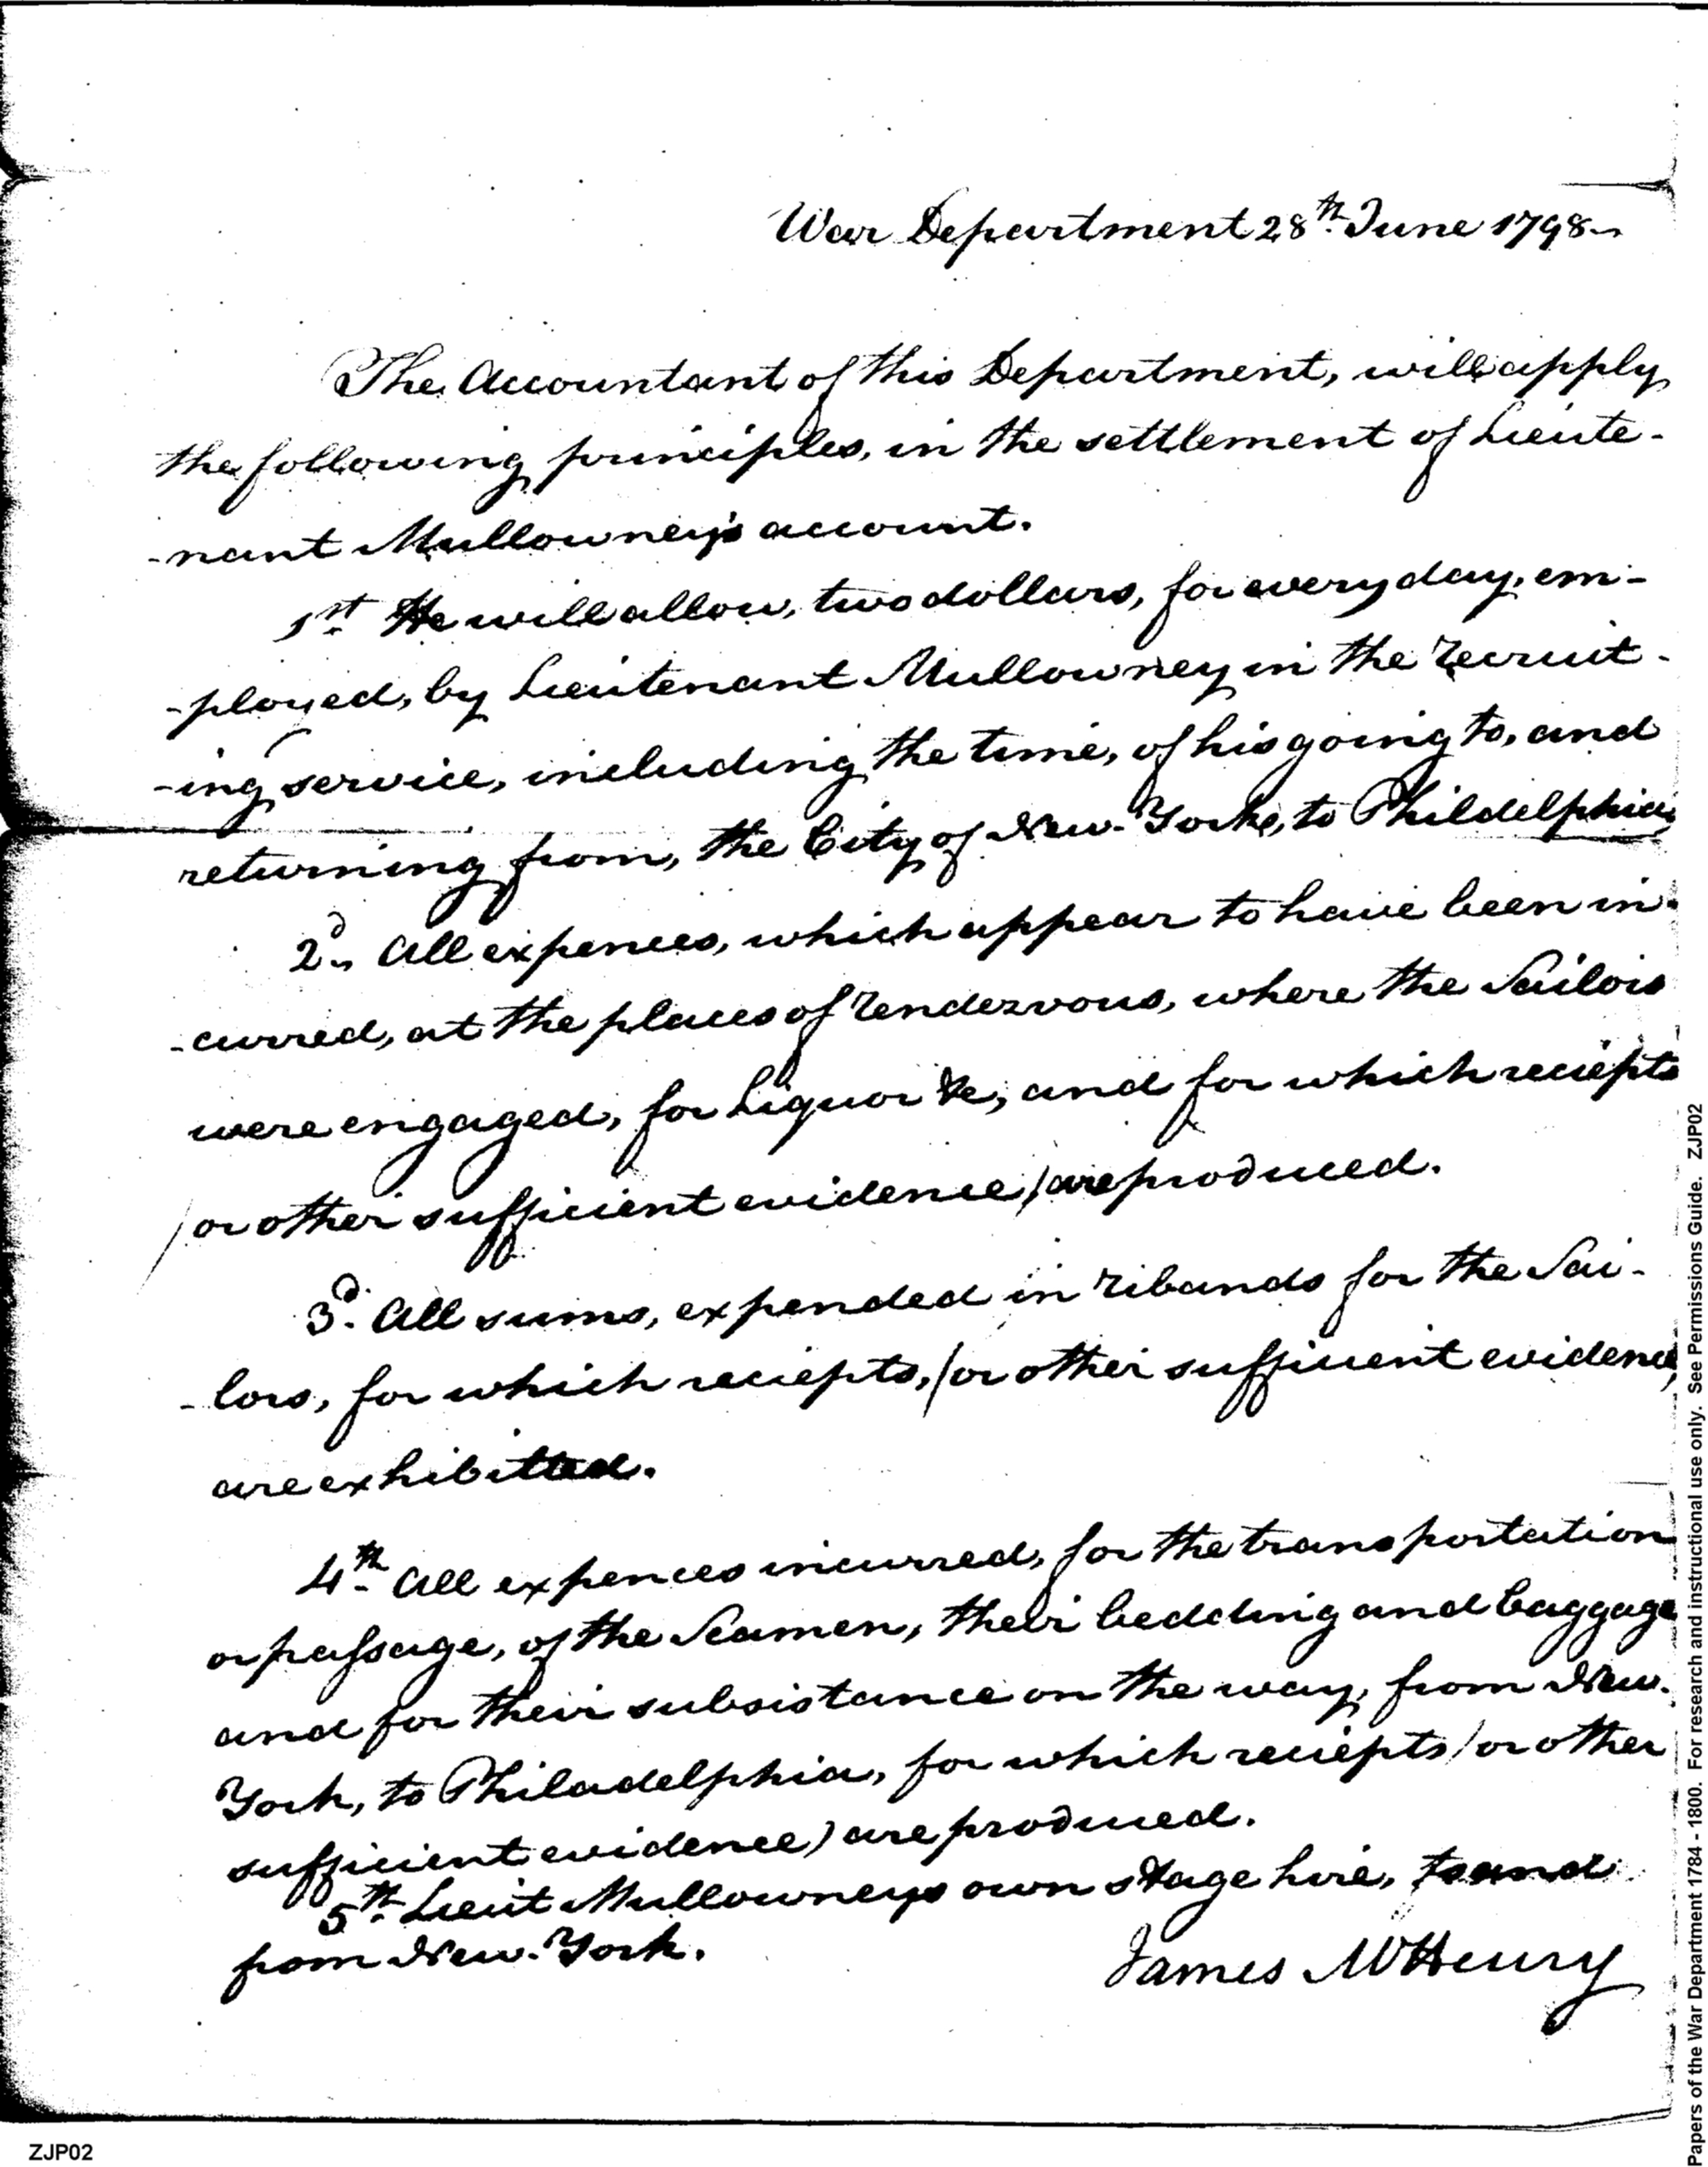 War Department 28th June 1798
The Accountant of this Department, will apply
the following principles, in the settlement of Lieute-
-nant Mullowney's account.
1st He will allow, two dollars, for every day, em-
-ployed, by Lieutenant Mullowney in the recruit-
-ing service, including the time, of his going to, and
returning from, the City of New-York, to Phildelphia
2d. All expences, which appear to have been in-
-curred, at the places of rendezvous, where the Sailors
were engaged, for Liquor &c, and for which reciepts
(or other sufficient evidence) are produced.
3d. All sums, expended in ribands for the Sai-
-lors, for which reciepts, (or other sufficient evidence,
are exhibitted.
4th All expences incurred, for the transportation
or passage, of the Seamen, their bedding and baggage
and for their subsistance on the way, from New-
York, to Philadelphia, for which reciepts (or other
sufficient evidence) are produced.
5th Lieut Mullowneys own stage hire, to and
from New-York.
James McHenry
ZJP02
Papers of the War Department 1784 - 1800. For research and instructional use only. See Permissions Guide. ZJP02